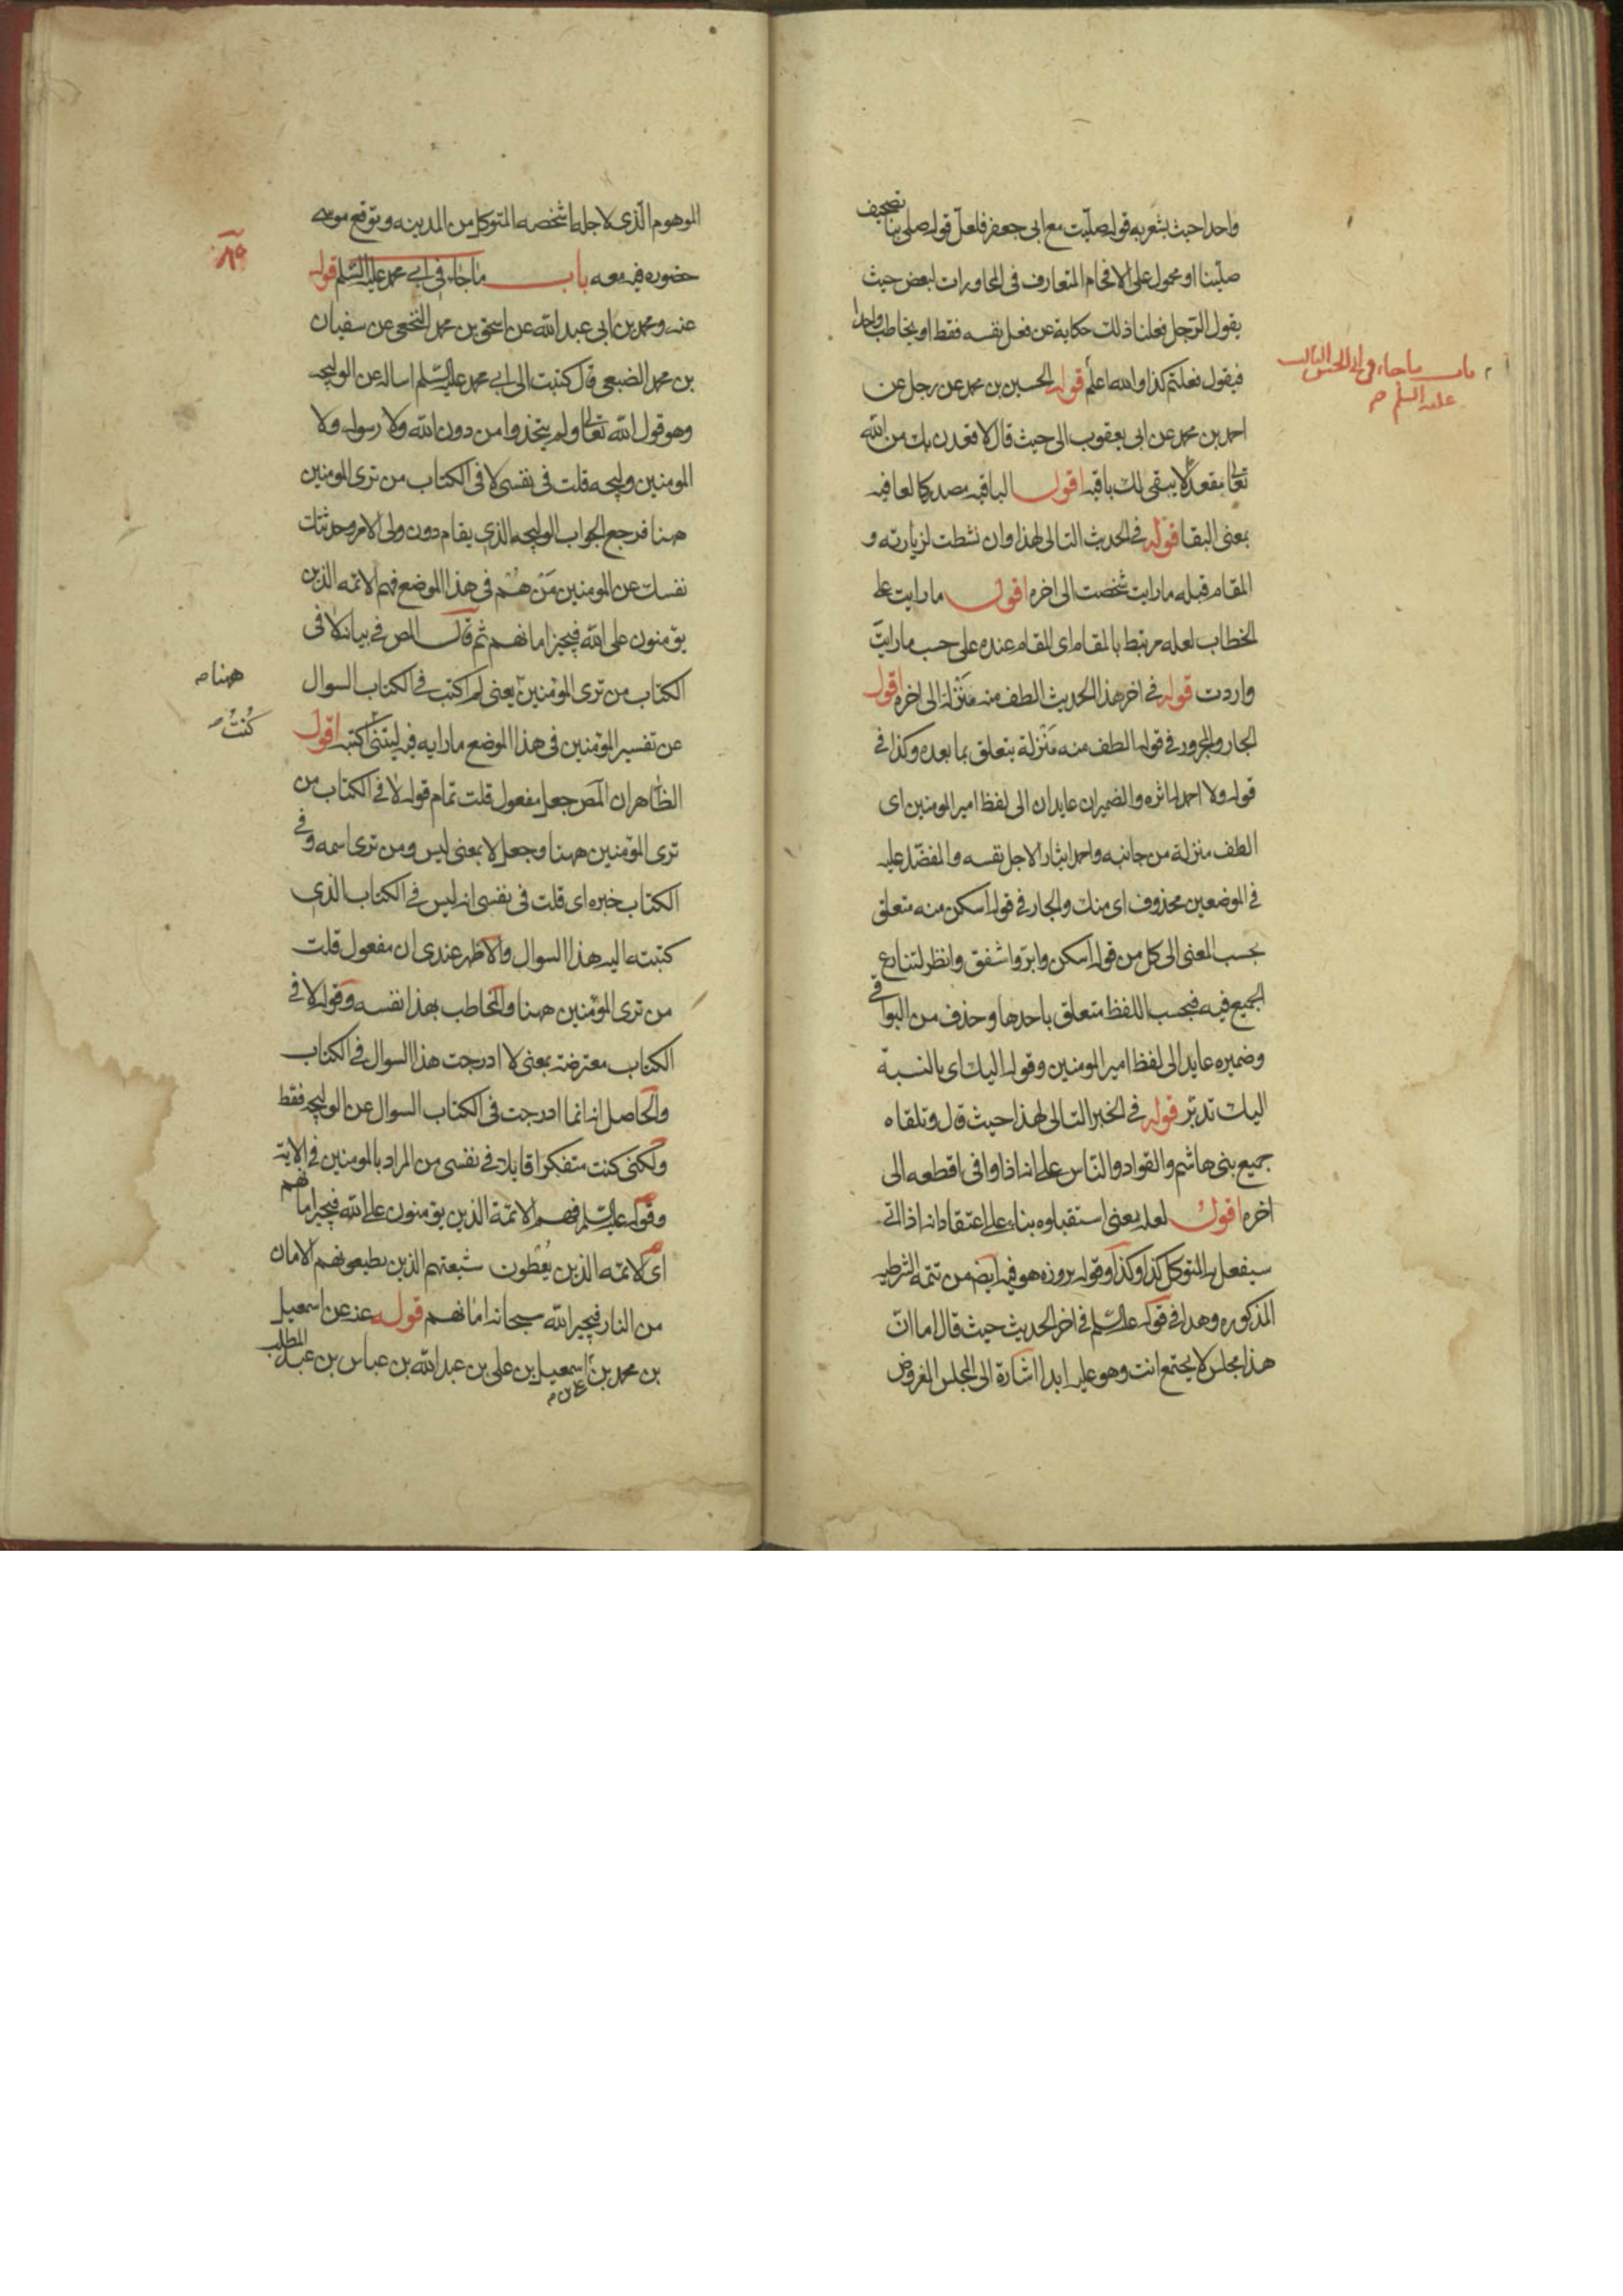 واحدا حيث يشعر به قوله صليت مع ابى جعفر فلعل قوله صلى بنا تصحيف
صلينا او محمول على الافخام المتعارف فى المحاورات لبعض حيث
يقول الرجل فعلنا ذلك حكاية عن فعل نفسه فقط او يخاطب واحدا
فيقول فعلتم كذا والله اعلم قوله الحسين بن محمد عن رجل عن
باب ما جاء فى ابى الحسن الثالث
عليه السلم
احمد بن محمد عن ابى يعقوب الى حيث قال لاقعدن بك من الله
تعالى مقعدا لا يبقى لك باقيه اقول الباقيه مصدر كالعافيه
بمعنى البقا قوله فى الحديث التالى لهذا وان نشطت لزيارته و
المقام قبله ما رايت شخصت الى اخره اقول ما رايت على
الخطاب لعله مرتبط بالمقام اى المقام عنده على حسب ما رايت
واردت قوله فى اخر هذا الحديث الطف منه منزلة الى اخره اقول
الجار والمجرور فى قوله الطف منه منزلة يتعلق بما بعده وكذا فى
قوله ولا احمد له اثره والضميران عايدان الى لفظ امير المومنين اى
الطف منزلة من جانبه واحمد ايثارا لاجل نفسه والمفضل عليه
فى الموضعين محذوف اى منك والجار فى قوله اسكن منه متعلق
بحسب المعنى الى كل من قوله اسكن وابر واشفق وانظر لتنازع
الجميع فيه فبحسب اللفظ متعلق باحدها وحذف من البواقى
وضميره عايد الى لفظ امير المومنين وقوله اليك اى بالنسبة
اليك تدبر قوله فى الخبر التالى لهذا حيث قال وتلقاه
جميع بنى هاشم والقواد والناس على انه اذا وافى اقطعه الى
اخره اقول لعله يعنى استقبلوه بناء على اعتقاد انه اذا اتى
سيفعل له المتوكل كذا وكذا وقوله يروزه هو فيه ايضا من تتمه الشرطيه
المذكوره وهذا فى قوله عليه السلم فى اخر الحديث حيث قال اما ان
هذا مجلس لا يجتمع انت وهو عليه ابدا اشارة الى المجلس المفروض
الموهوم الذى لاجله اشخصه المتوكل من المدينه وتوقع موسى
حضوره فيه معه باب ما جاء فى ابى محمد عليه السلم قوله
عنه ومحمد بن ابى عبد الله عن اسحق بن محمد النخعى عن سفيان
بن محمد الضبعى قال كتبت الى ابى محمد عليه السلم اساله عن الوليجه
وهو قول الله تعالى ولم يتخذوا من دون الله ولا رسوله ولا
المومنين وليجه قلت فى نفسى لا فى الكتاب من ترى المومنين
ههنا فرجع الجواب الوليجه الذى يقام دون ولى الامر وحدثتك
نفسك عن المومنين من هم فى هذا الموضع فهم الائمه الذين
يؤمنون على الله فيجيز امانهم ثم قال المص فى بيانه لا فى
الكتاب من ترى المؤمنين يعنى لم اكتب فى الكتاب السوال
ههنا
عن تفسير المؤمنين فى هذا الموضع ما رايه فيه ليتنى اكتبه اقول
كنت
الظاهر ان المص جعل مفعول قلت تمام قوله لا فى الكتاب من
ترى المؤمنين ههنا وجعل لا بمعنى ليس ومن ترى اسمه وفى
الكتاب خبره اى قلت فى نفسى انه ليس فى الكتاب الذى
كتبته اليه هذا السوال والاظهر عندى ان مفعول قلت
من ترى المؤمنين ههنا والمخاطب بهذا نفسه وقوله لا فى
الكتاب معترضة بمعنى لا ادرجت هذا السوال فى الكتاب
والحاصل انه انما ادرجت فى الكتاب السوال عن الوليجه فقط
ولكنى كنت متفكرا قايلا فى نفسى من المراد بالمومنين فى الاية
وقوله عليه السلم فهم الائمة الذين يؤمنون على الله فيجيز امانهم
اى الائمه الذين يعطون شيعتهم الذين يطيعونهم الامان
من النار فيجيز الله سبحانه امانهم قوله عنه عن اسمعيل
بن محمد بن اسمعيل بن على بن عبد الله بن عباس بن عبد المطلب